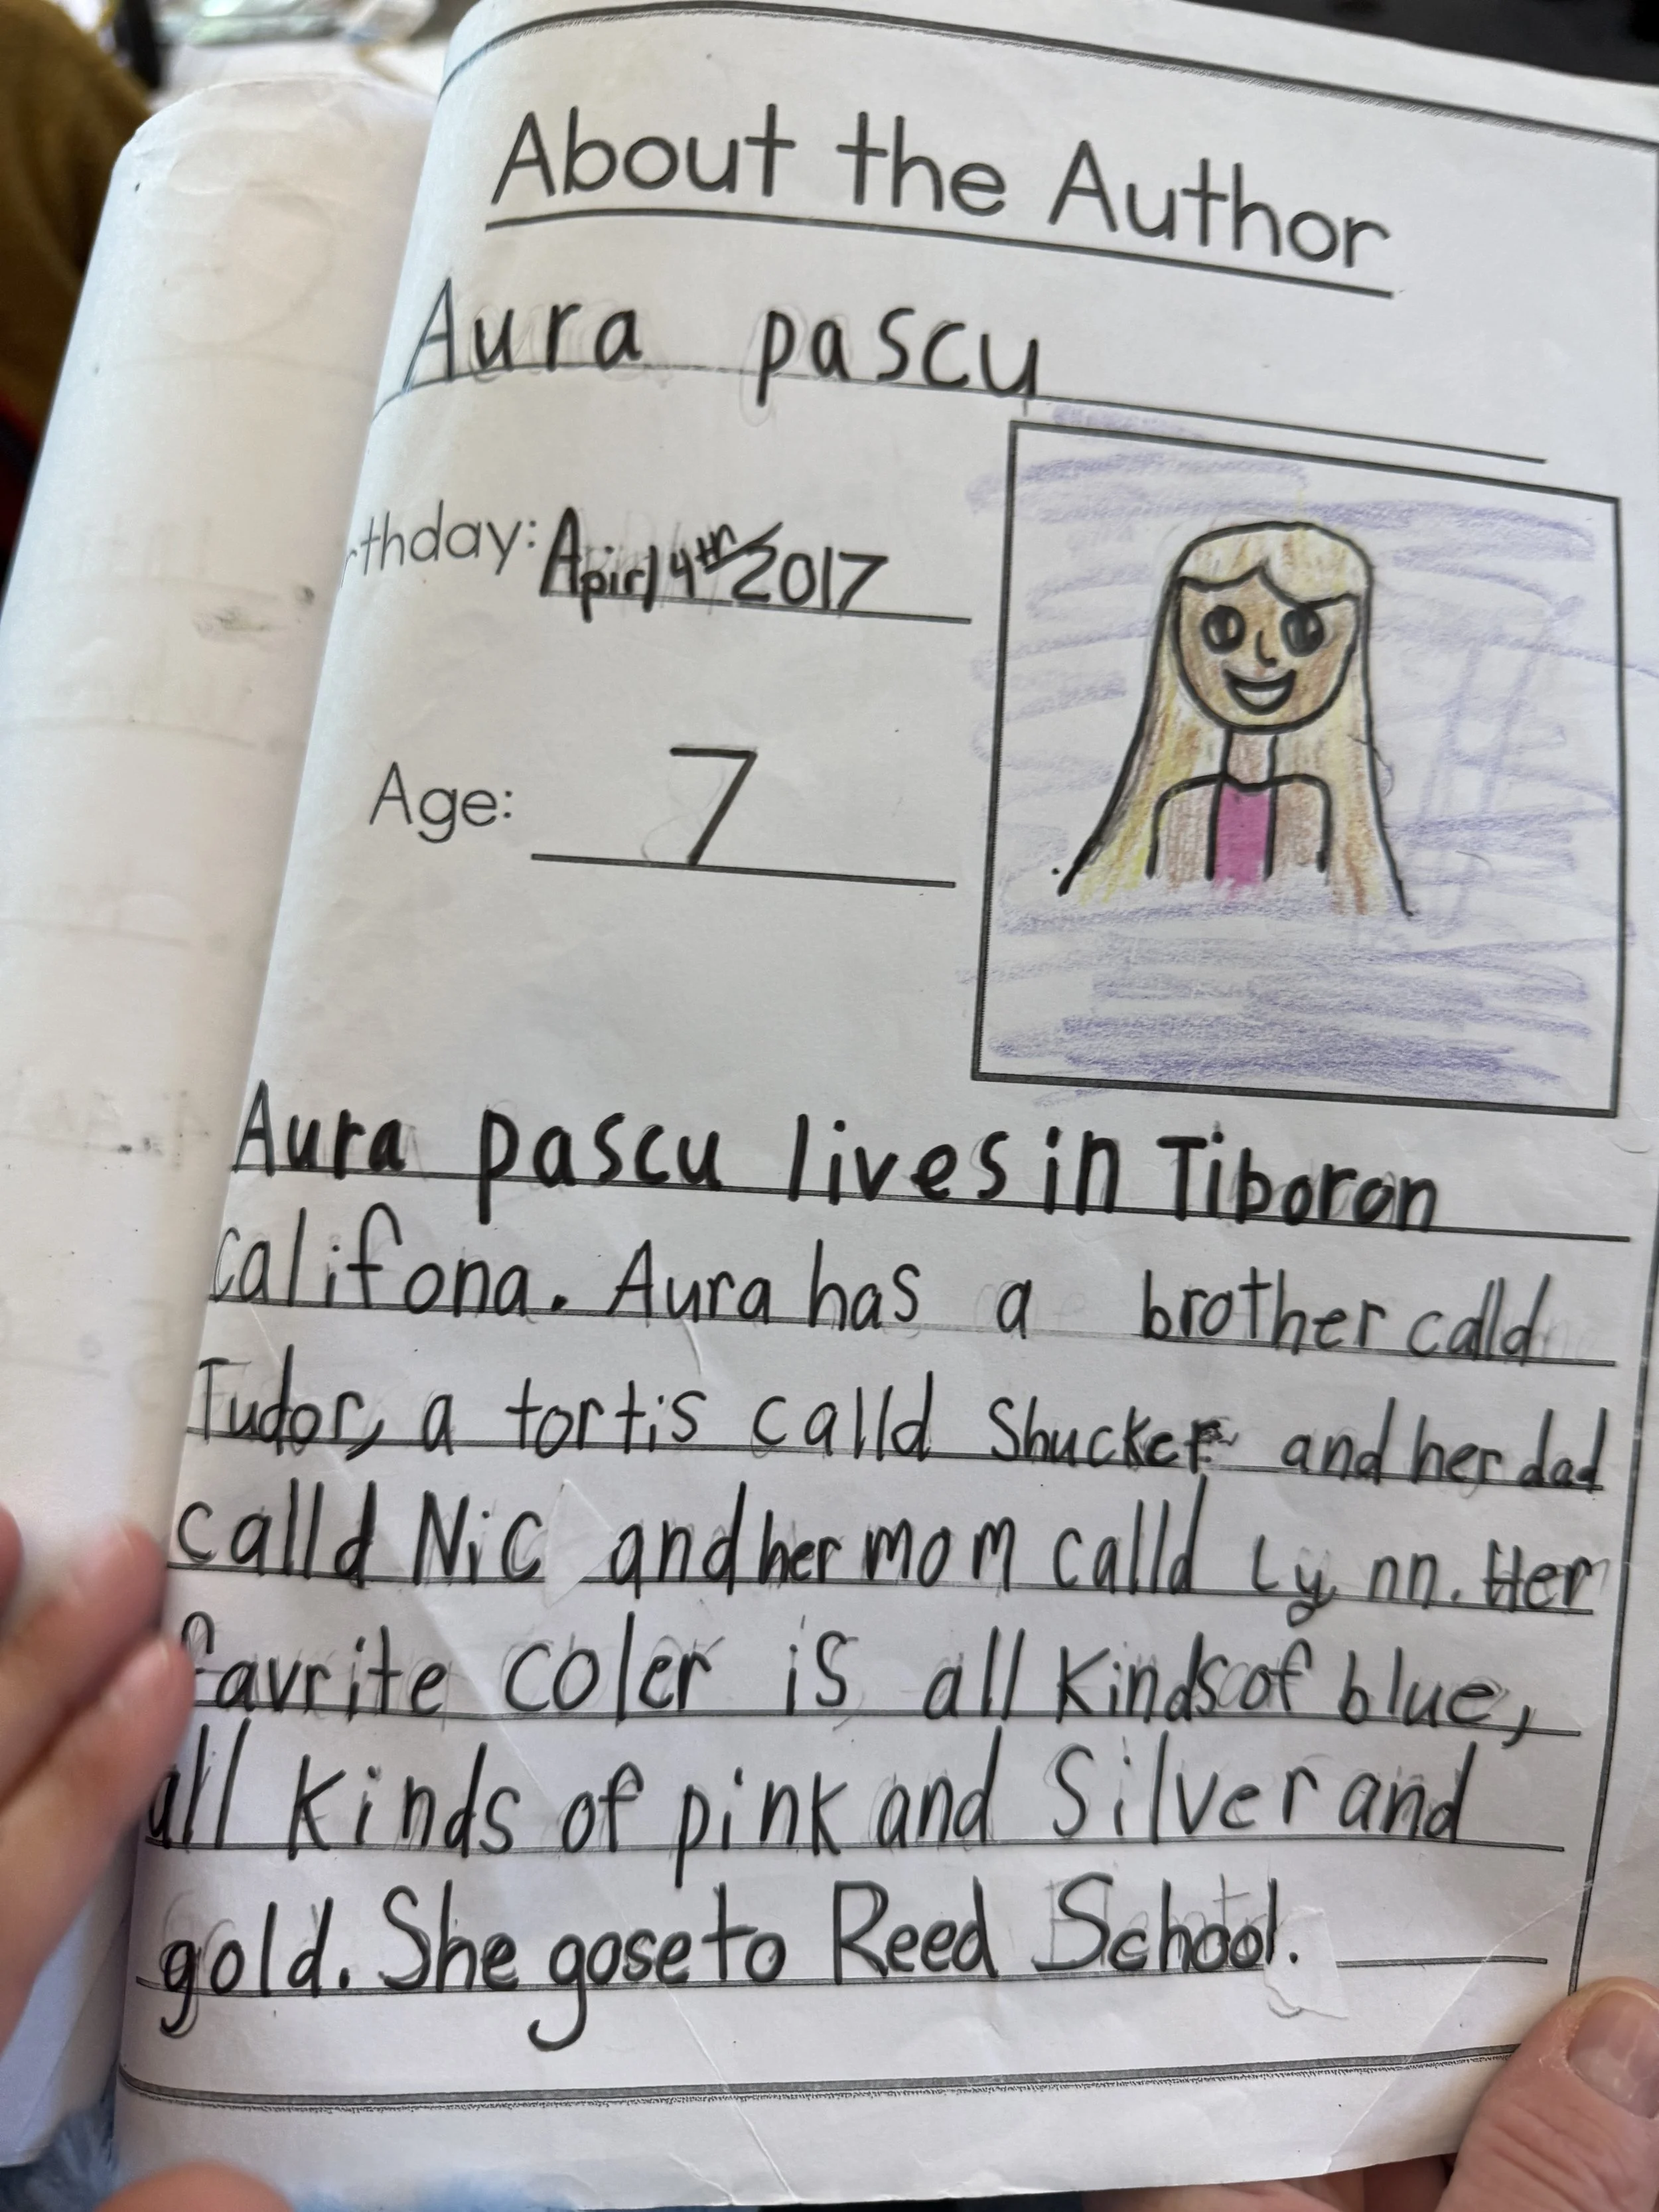 About the Author
Aura pascu
rthday: Apirl 4th 2017
Age: 7
Aura pascu lives in Tiboron
califona. Aura has a brother calld
Tudor, a tortis calld Shucker and her dad
calld Nic and her mom calld Lynn. Her
favrite coler is all kinds of blue,
all kinds of pink and Silver and
gold. She gose to Reed School.